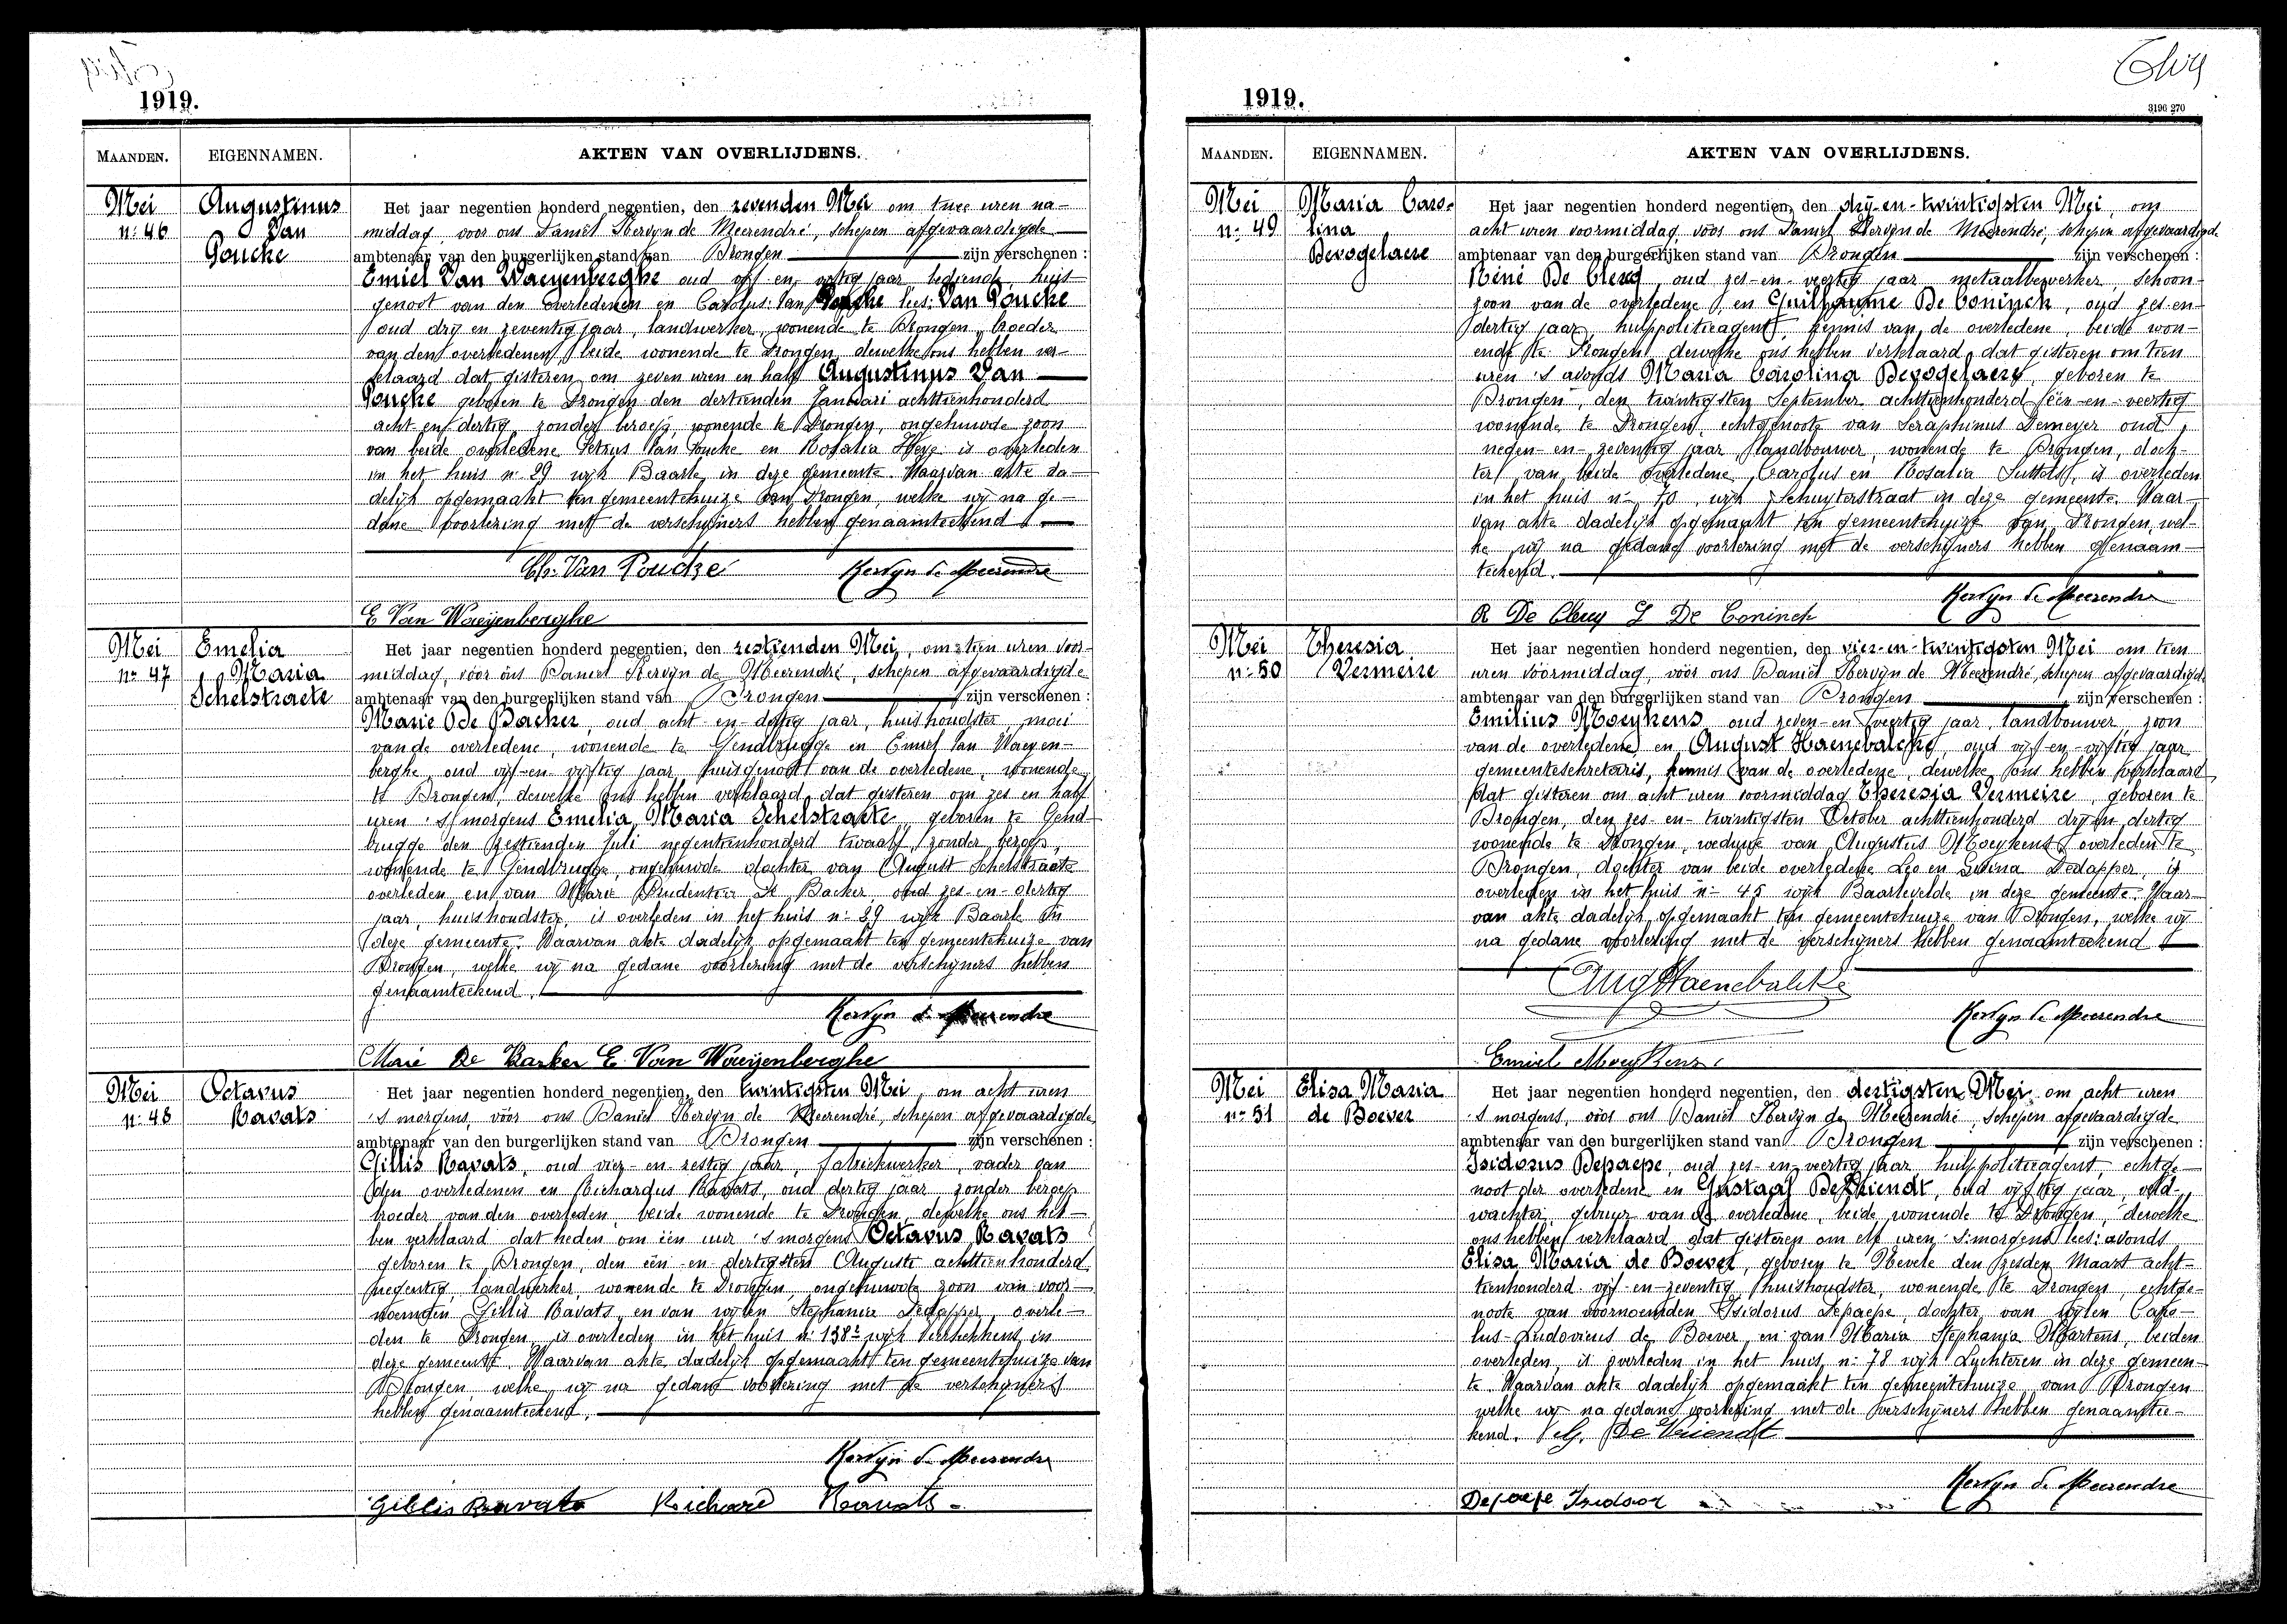 1919.
MAANDEN. EIGENNAMEN. AKTEN VAN OVERLIJDENS.
Mei Augustinus Het jaar negentien honderd negentien, den zevenden Mei om twee uren na-
n: 46 Van middag, voor ons Daniël Kervyn de Meerendré, schepen afgevaardigde
Poucke ambtenaar van den burgerlijken stand van Drongen zijn verschenen :
Emiel Van Waeyenberghe oud vijf-en-vijftig jaar, bediende, huis-
genoot van den overledenen en Carolus Van lees: Van Poucke
oud drij en zeventig jaar, landwerker, wonende te Drongen, broeder
van den overledenen, beide wonende te Drongen, dewelke ons hebben ver-
klaard dat gisteren om zeven uren en half Augustinus Van
Poucke geboren te Drongen den dertienden Januari achttienhonderd
acht en dertig, zonder beroep, wonende te Drongen, ongehuwde zoon
van beide overledene Petrus Van Poucke en Rosalia Heye is overleden
in het huis n: 29 wijk Baarle in deze gemeente. Waarvan akte da-
delijk opgemaakt ten gemeentehuize van Drongen, welke wij na ge-
dane voorlezing met de verschijners hebben genaamteekend
Ch. Van Poucke Kervyn de Meerendre
E Van Waeyenberghe
Mei Emelia Het jaar negentien honderd negentien, den zestienden Mei, om tien uren voor-
n: 47 Maria middag, vóor ons Daniel Kervyn de Meerendré, schepen afgevaardigde
Schelstraete ambtenaar van den burgerlijken stand van Drongen zijn verschenen :
Marie De Backer, oud acht-en-dertig jaar, huishoudster, moei
van de overledene, wonende te Gendbrugge en Emiel Van Waeyen-
berghe, oud vijf-en vijftig jaar, huisgenoot van de overledene, wonende
te Drongen, dewelke ons hebben verklaard dat gisteren om zes en half
uren 's morgens Emelia Maria Schelstraete, geboren te Gend-
brugge den zestienden Juli negentienhonderd twaalf, zonder beroep,
wonende te Gendbrugge, ongehuwde dochter van August Schelstraete
overleden en van Marie Prudentia De Backer oud zes-en-dertig
jaar, huishoudster, is overleden in het huis n: 29 wijk Baarle in
deze gemeente. Waarvan akte dadelijk opgemaakt ten gemeentehuize van
Drongen, welke wij na gedane voorlezing met de verschijners hebben
genaamteekend.
Kervyn de Meerendre
Marie De Backer E. Van Waeyenberghe
Mei Octavus Het jaar negentien honderd negentien, den twintigsten Mei, om acht uren
n: 48 Ravats 's morgens, vóór ons Daniel Kervyn de Meerendré, schepen afgevaardigde
ambtenaar van den burgerlijken stand van Drongen zijn verschenen :
Gillis Ravats, oud vier-en-zestig jaar, fabriekwerker, vader van
den overledenen en Richardus Ravats, oud dertig jaar zonder beroep
broeder van den overleden, beide wonende te Drongen, dewelke ons heb-
ben verklaard dat heden om één uur 's morgens Octavus Ravats
geboren te Drongen, den één-en-dertigsten Augusti achttienhonderd
negentig, landwerker, wonende te Drongen, ongehuwde zoon van voor-
noemden Gillis Ravats, en van wijlen Stephania Dedapper, overle-
den te Drongen, is overleden in het huis n: 138² wijk in
deze gemeente. Waarvan akte dadelijk opgemaakt ten gemeentehuize van
Drongen, welke wij na gedane voorlezing met de verschijners
hebben genaamteekend.
Kervyn de Meerendre
Gillis Ravats Richard Ravats
1919.
3196 270
MAANDEN. EIGENNAMEN. AKTEN VAN OVERLIJDENS.
Mei Maria Caro- Het jaar negentien honderd negentien, den drij-en-twintigsten Mei, om
n: 49 lina acht uren voormiddag, vóór ons Daniel Kervyn de Meerendré, schepen afgevaardigde
Bevogelaere ambtenaar van den burgerlijken stand van Drongen zijn verschenen :
Réné De Clercq, oud zes-en-veertig jaar, metaalbewerker, schoon-
zoon van de overledene, en Guilhaume De Coninck, oud zes-en-
dertig jaar, hulppolitieagent, kennis van de overledene, beide won-
ende te Drongen, dewelke ons hebben verklaard, dat gisteren om tien
uren 's avonds Maria Carolina Bevogelaere, geboren te
Drongen, den twintigsten September achttienhonderd één-en-veertig
wonende te Drongen, echtgenoote van Seraphinus Demeyer oud
negen-en-zeventig jaar, landbouwer, wonende te Drongen, doch-
ter van beide overledene, Carolus en Rosalia is overleden
in het huis n: 70, wijk Schuyterstraat in deze gemeente. Waar-
van akte dadelijk opgemaakt ten gemeentehuize van Drongen, wel-
ke wij na gedane voorlezing met de verschijners hebben genaam-
teekend.
Kervyn de Meerendre
R De Clercq G De Coninck
Mei Theresia Het jaar negentien honderd negentien, den vier-en-twintigsten Mei om tien
n: 50 Vermeire uren voormiddag, vóór ons Daniël Kervyn de Meerendré, schepen afgevaardigde
ambtenaar van den burgerlijken stand van Drongen zijn verschenen :
Emilius Moeykens, oud zeven-en-veertig jaar, landbouwer, zoon
van de overledene en August Haenebalcke, oud vijf-en-vijftig jaar
gemeentesekretaris, kennis van de overledene, dewelke ons hebben verklaard
dat gisteren om acht uren voormiddag Theresia Vermeire, geboren te
Drongen, den zes-en-twintigsten October achttienhonderd drij en dertig
wonende te Drongen, weduwe van Augustus Moeykens, overleden te
Drongen, dochter van beide overledene Leo en Livina Dedapper, is
overleden in het huis n: 45 wijk Baarlevelde in deze gemeente. Waar-
van akte dadelijk opgemaakt ten gemeentehuize van Drongen, welke wij
na gedane voorlezing met de verschijners hebben genaamteekend
Aug Haenebalcke
Kervyn de Meerendre
Emiel Moeykens
Mei Elisa Maria Het jaar negentien honderd negentien, den dertigsten Mei om acht uren
n: 51 de Boever 's morgens, vóór ons Daniël Kervyn de Meerendré, schepen afgevaardigde
ambtenaar van den burgerlijken stand van Drongen zijn verschenen :
Isidorus Depaepe, oud zes-en-veertig jaar, hulppolitieagent, echtge-
noot der overledene en Gustaaf De Vriendt, oud vijftig jaar, veld-
wachter, gebuur van de overledene, beide wonende te Drongen, dewelke
ons hebben verklaard, dat gisteren om elf uren 's morgens lees: avonds
Elisa Maria de Boever, geboren te Nevele den zesden Maart acht-
tienhonderd vijf-en-zeventig, huishoudster, wonende te Drongen, echtge-
noote van voornoemden Isidorus Depaepe, dochter van wijlen Caro-
lus-Ludovicus de Boever en van Maria Stephania Martens, beiden
overleden, is overleden in het huis n: 78 wijk Luchteren in deze gemeen-
te. Waarvan akte dadelijk opgemaakt ten gemeentehuize van Drongen
welke wij na gedane voorlezing met de verschijners hebben genaamtee-
kend. G. De Vriendt
Kervyn de Meerendre
Depaepe Isidoor